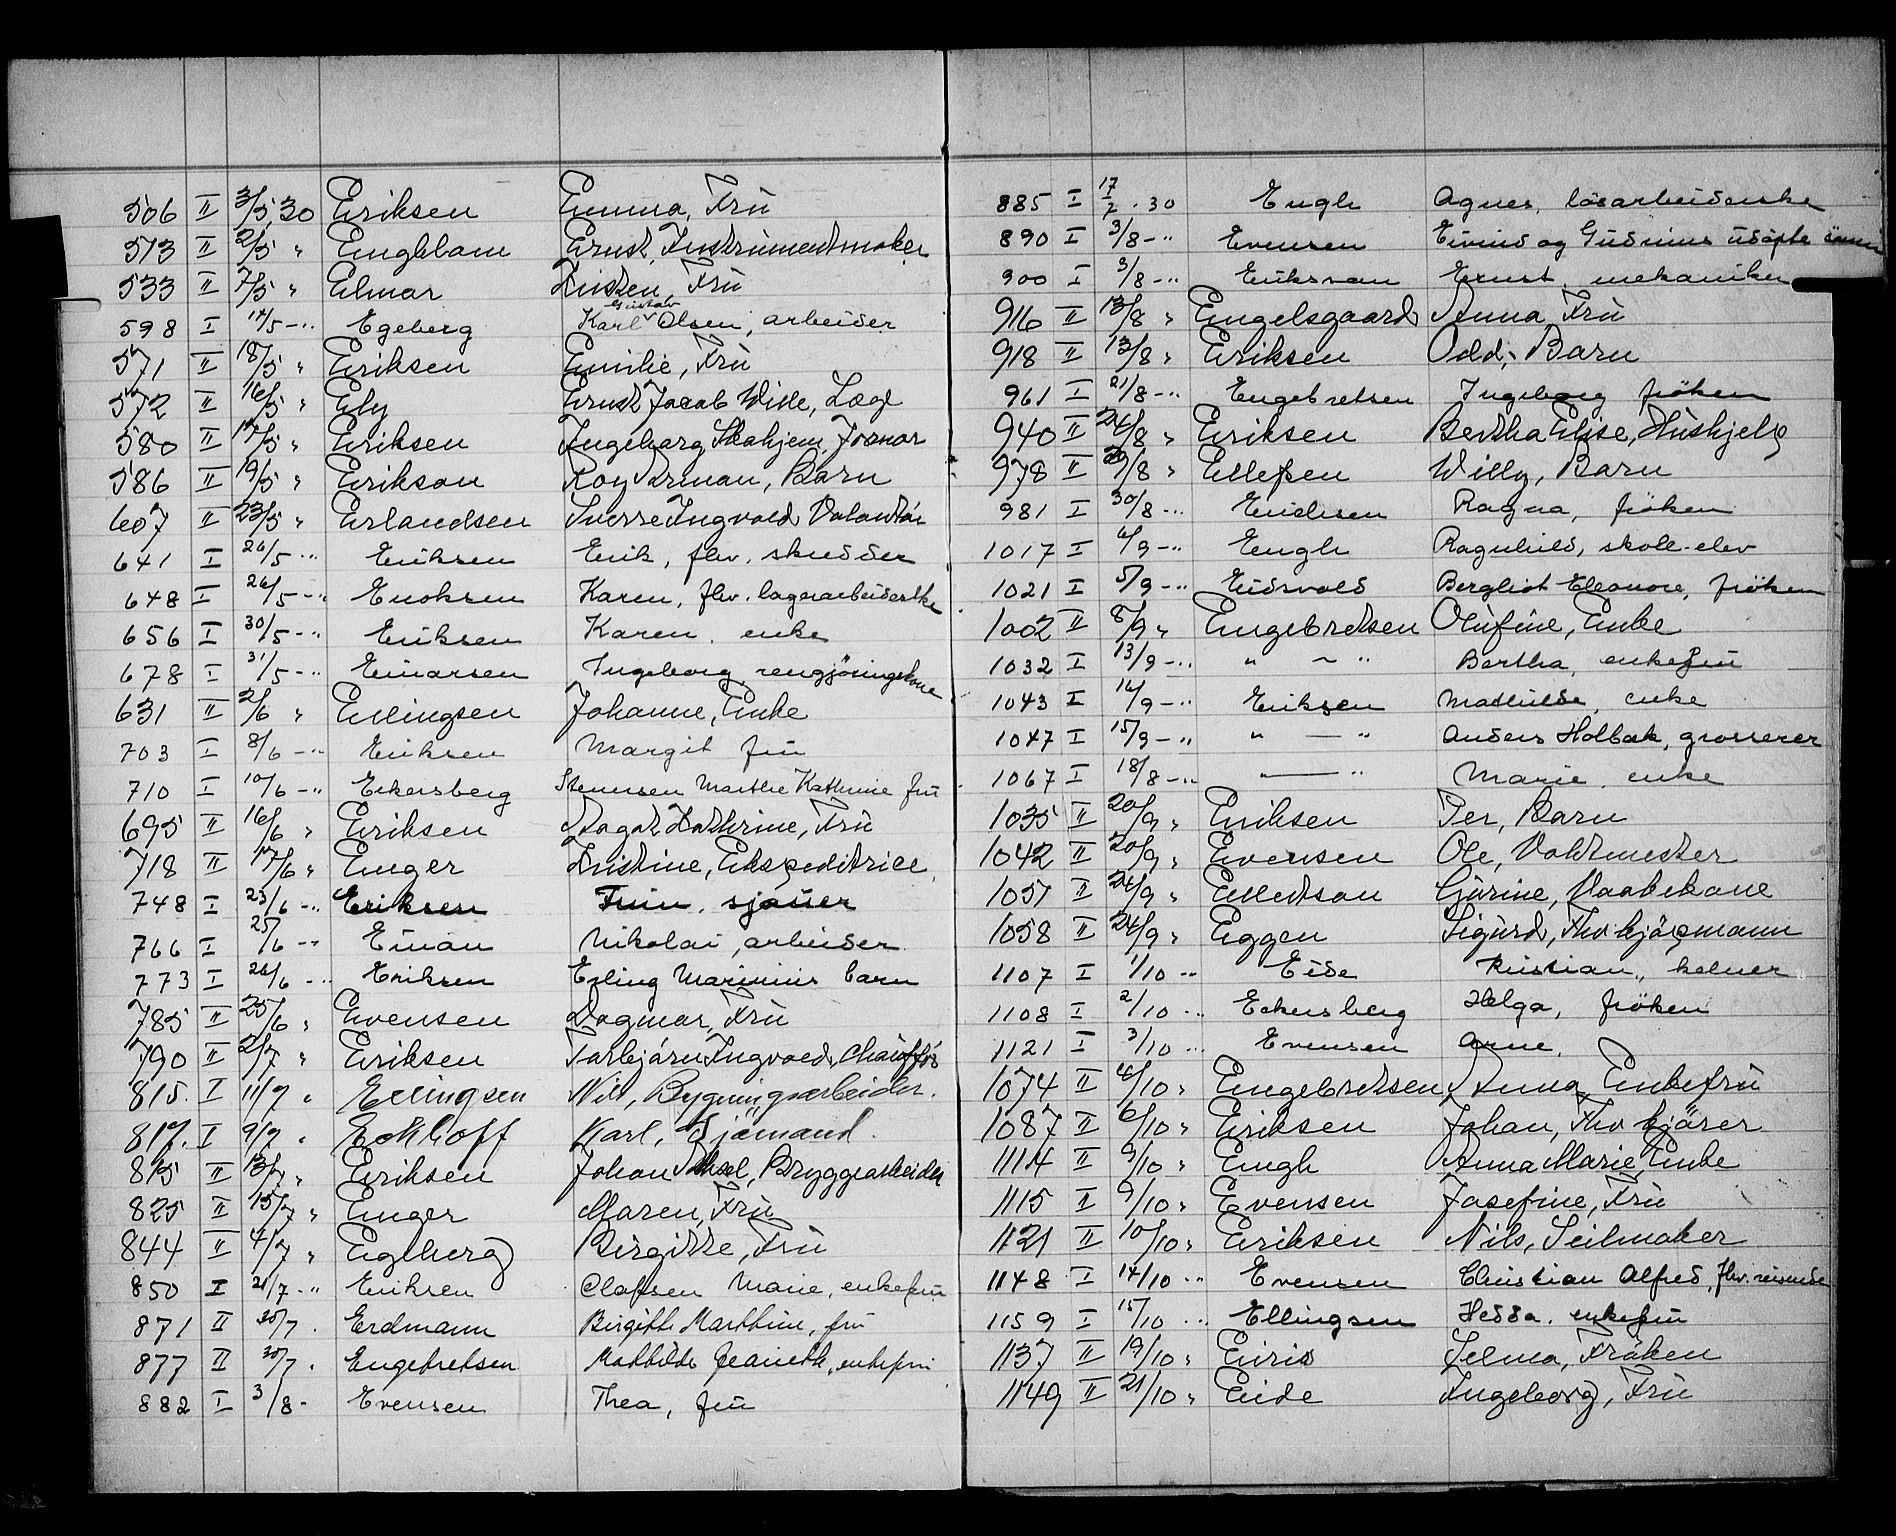 506 II 3/5 30 Eriksen Emma, Fru
513 II 2/5 " Engblom Ernst, Instrumentmaker
533 II 7/5 " Elmar Kristen, Fru
598 I 14/5 - " Egeberg Karl Gustav Olsen, arbeider
571 II 18/5 " Eriksen Emilie, Fru
572 II 16/5 " Ely Ernst Jacob Wille, Læge
580 II 17/5 " Eriksen Ingeborg Skahjem, Josnor
586 II 19/5 " Erikson Roy Norman, Barn
607 II 23/5 " Erlandsen Sverre Ingvald, Volontør
641 I 26/5 - " Eriksen Erik, fhv. skredder
648 I 26/5 - " Enoksen Karen, fhv. lagerarbeiderske
656 I 30/5 - " Eriksen Karen, enke
678 I 31/5 - " Einarsen Ingeborg, rengjöringskone
631 II 2/6 " Ellingsen Johanne, Enke
703 I 8/6 - " Eriksen Margit fru
710 I 10/6 - " Eckersberg Stenersen Marthe Kathrine fru
695 II 16/6 " Eriksen Aagot Kathrine, Fru
718 II 17/6 " Enger Kristine, Ekspeditrice
748 I 23/6 - " Eriksen Finn, sjauer
766 I 25/6 - " Einan Nikolai, arbeider
773 I 26/6 - " Eriksen Erling Marinius barn
785 II 25/6 " Evensen Dagmar, Fru
790 II 2/7 " Eriksen Torbjørn Ingvald, Chauffør
815. I 11/7 " Ellingsen Nils, Bygningsarbeider.
817. I 9/7 " Eckhoff Karl, Sjømand.
815 II 13/7 " Eriksen Johan Aksel, Bryggearbeider
825 II 15/7 " Enger Maren, Fru
844 II 4/7 " Egeberg Birgitte, Fru
850 I 21/7 - " Eriksen Olafsen Marie, enkefru
871 II 30/7 . Erdmann Birgitte Marthine, fru
877 II 30/7 . Engebretsen Mathilde Jeanette, enkefru
882 I 3/8 - Evensen Thea, fru
885 I 17/7 . 30 Engh Agnes, løsarbeiderske
890 I 3/8 - " Evensen Eivind og Gudruns udøpte
900 I 3/8 - " Eriksson Ernst, mekaniker
916 II 13/8 " Engelsgaard Anna, Fru
918 II 13/8 " Eriksen Odd, Barn
961 I 21/8 - " Engebretsen Ingeborg fröken
940 II 24/8 " Eriksen Bertha Elise, Hushjelp
978 II 29/8 " Ellefsen Willy, Barn
981 I 30/8 - " Ragna, fröken
1017 I 4/9 - " Engh Ragnhild, skole-elev
1021 I 5/9 - " Eidsvold Bergliot Eleonore, fröken
1002 II 8/9 " Engebretsen Olufine, Enke
1032 I 13/9 - " " ~ " Bertha, enkefru
1043 I 14/9 - " Eriksen Mathilde, enke
1047 I 15/9 - " " — " Anders Holbæk, grosserer
1067 I 18/8 - " " — " Marie, enke
1035 II 20/9 " Eriksen Per, Barn
1042 II 20/9 " Evensen Ole, Vaktmester
1051 II 24/9 " Gjurine, Vaskekone
1058 II 24/9 " Eggen Sigurd, Fhv kjøpmann
1107 I 1/10 " Eide Kristian, kelner
1108 I 2/10 " Eckersberg Helga, fröken
1121 I 3/10 " Evensen Arne,
1074 II 4/10 " Engebretsen, Anna, Enkefru
1087 II 6/10 " Eriksen Johan, Fhv kjører
1114 II 9/10 " Engh Anna Marie, Enke
1115 II 9/10 " Evensen Josefine, Fru
1121 II 10/10 " Eriksen Nils, Seilmaker
1148 I 14/10 " Evensen Christian Alfred, fhv. reisende
1159 I 15/10 " Ellingsen Hedda, enkefru
1137 II 19/10 " Selma, Frøken
1149 II 21/10 " Eide Ingeborg, Fru